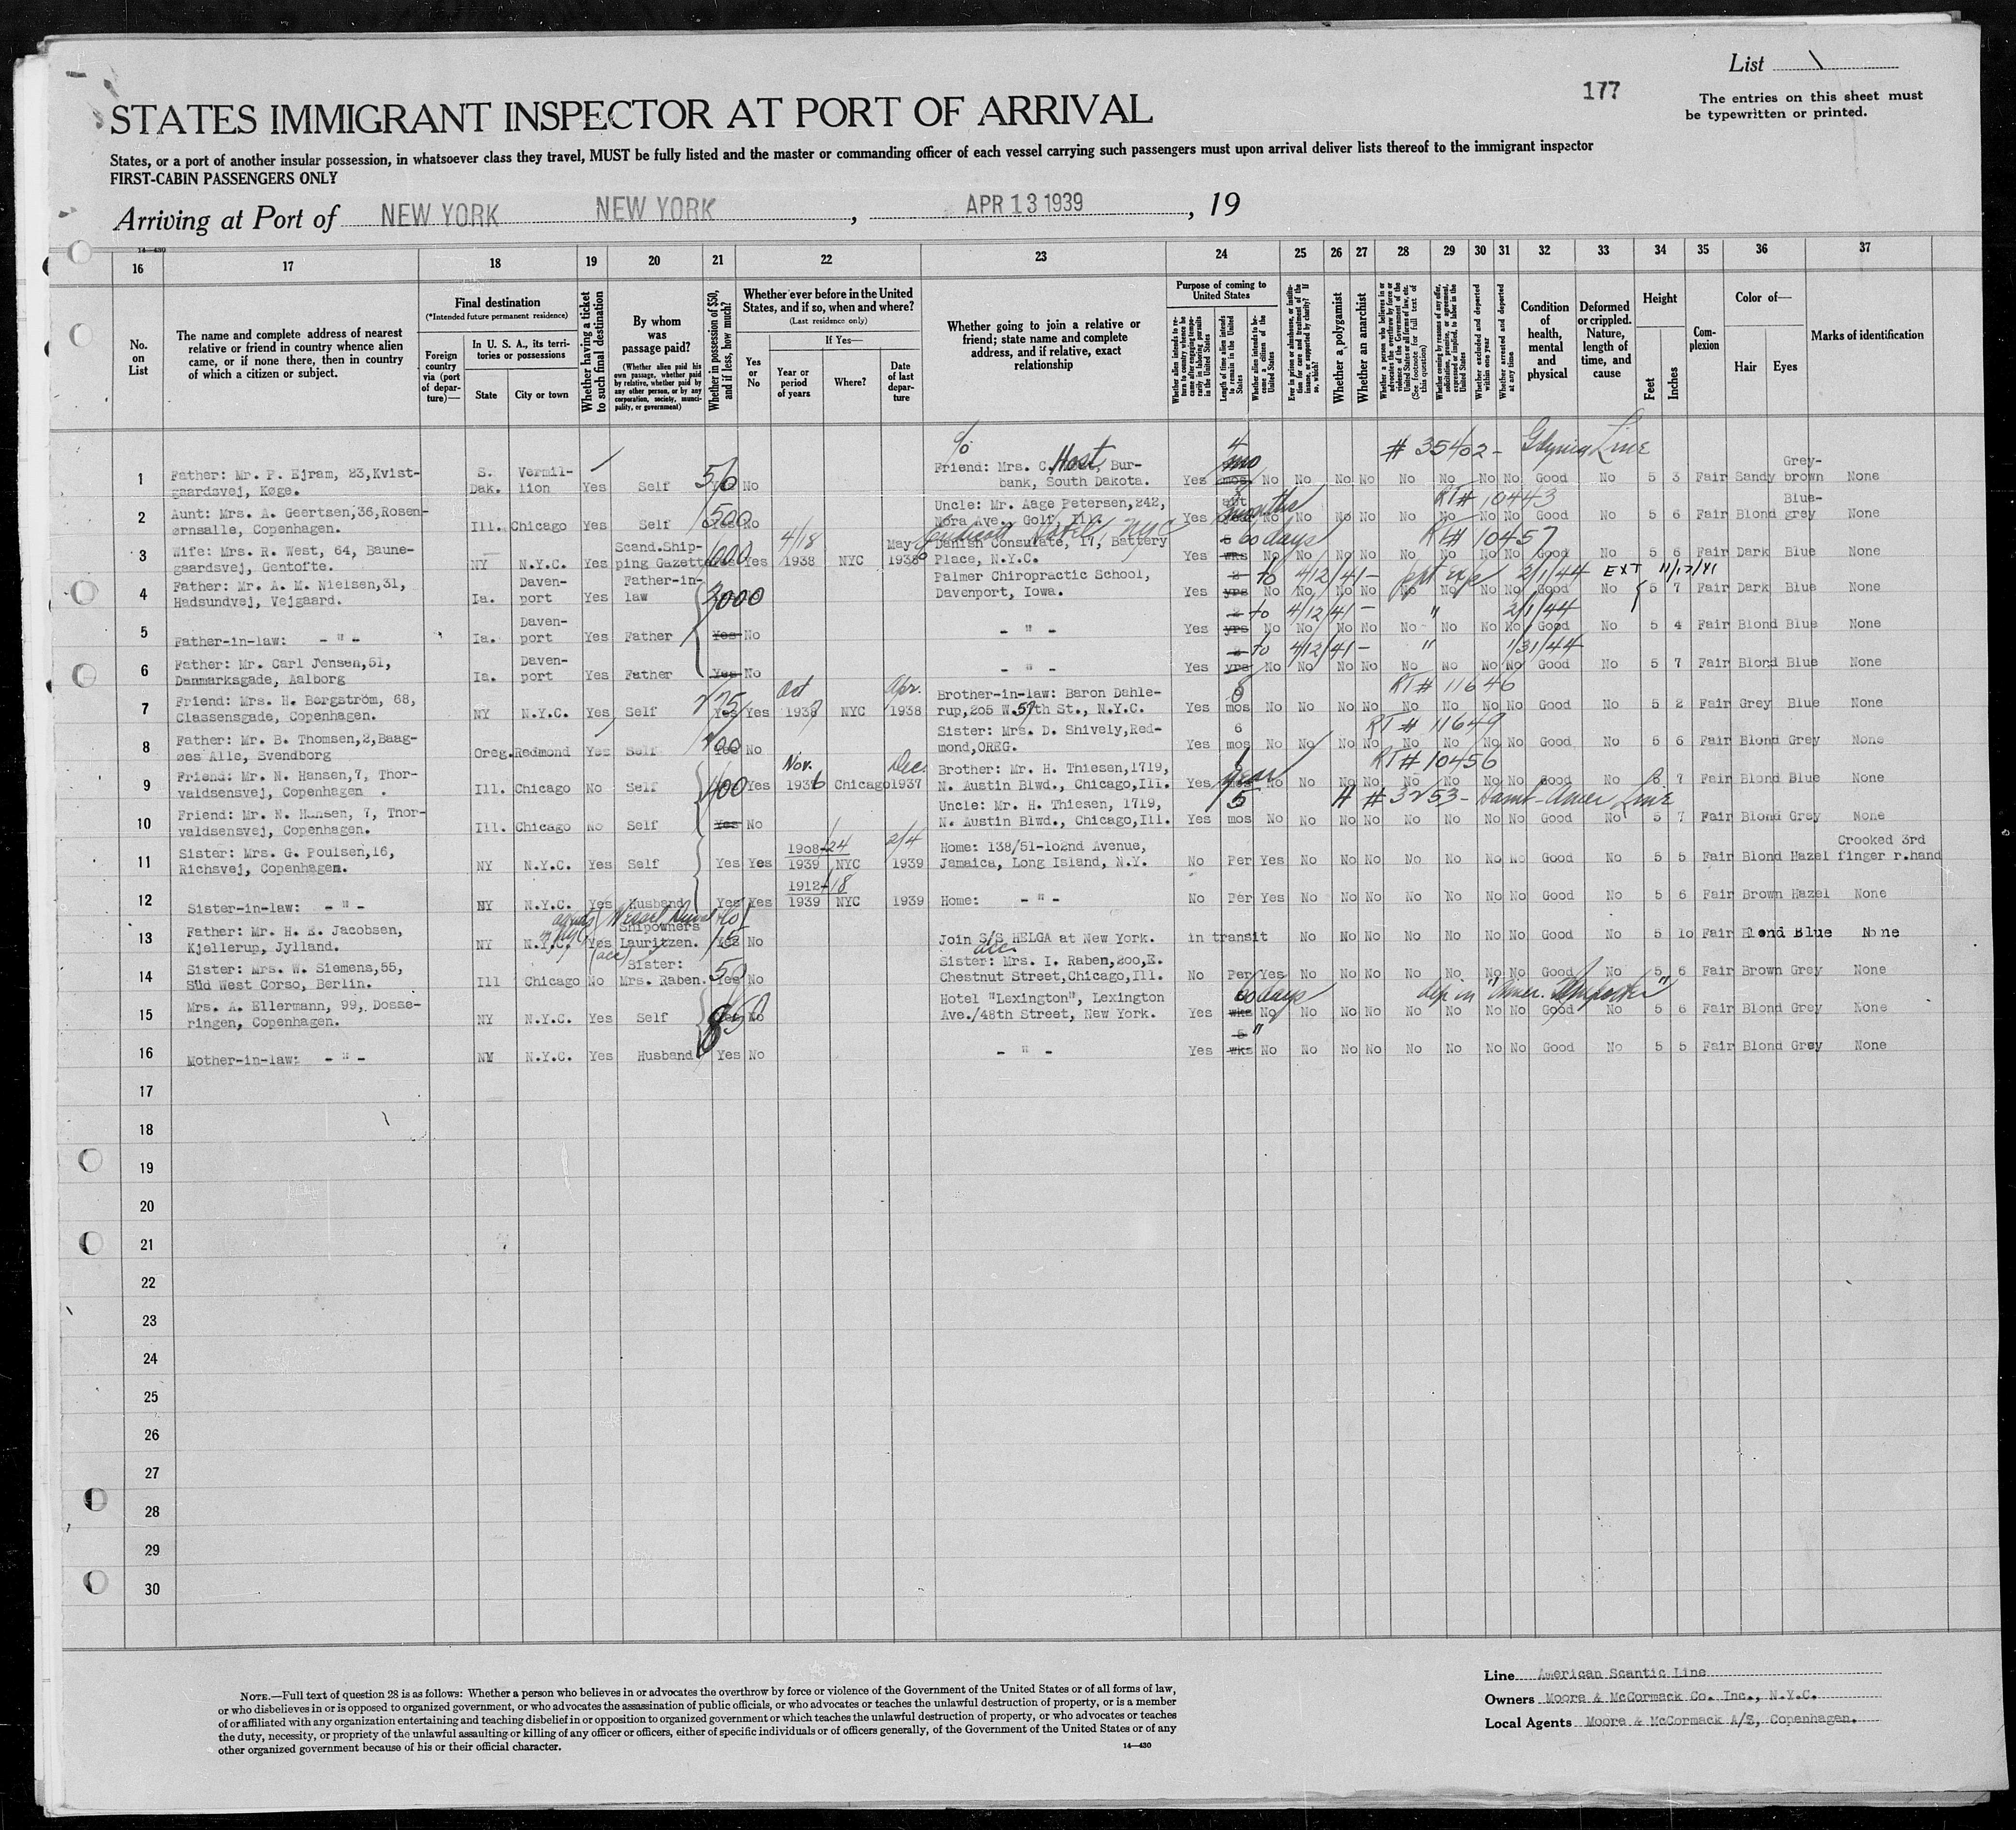 List \
177
The entries on this sheet must
be typewritten or printed.
STATES IMMIGRANT INSPECTOR AT PORT OF ARRIVAL
States, or a port of another insular possession, in whatsoever class they travel, MUST be fully listed and the master or commanding officer of each vessel carrying such passengers must upon arrival deliver lists thereof to the immigrant inspector
FIRST-CABIN PASSENGERS ONLY
Arriving at Port of NEW YORK NEW YORK, APR 13 1939, 19
14—430
16 17 18 19 20 21 22 23 24 25 26 27 28 29 30 31 32 33 34 35 36 37
No. on List
The name and complete address of nearest relative or friend in country whence alien came, or if none there, then in country of which a citizen or subject.
Final destination
(*Intended future permanent residence)
Foreign country via (port of departure)—
In U. S. A., its territories or possessions
State
City or town
Whether having a ticket to such final destination
By whom was passage paid?
(Whether alien paid his own passage, whether paid by relative, whether paid by any other person, or by any corporation, society, municipality, or government)
Whether in possession of $50, and if less, how much?
Whether ever before in the United States, and if so, when and where?
(Last residence only)
Yes or No
If Yes—
Year or period of years
Where?
Date of last departure
Whether going to join a relative or friend; state name and complete address, and if relative, exact relationship
Purpose of coming to United States
Whether alien intends to return to country whence he came after engaging temporarily in laboring pursuits in the United States
Length of time alien intends to remain in the United States
Whether alien intends to become a citizen of the United States
Ever in prison or almshouse, or institution for care and treatment of the insane, or supported by charity? If so, which?
Whether a polygamist
Whether an anarchist
Whether a person who believes in or advocates the overthrow by force or violence of the Government of the United States or all forms of law, etc. (See footnote for full text of this question)
Whether coming by reasons of any offer, solicitation, promise, or agreement, expressed or implied, to labor in the United States
Whether excluded and deported within one year
Whether arrested and deported at any time
Condition of health, mental and physical
Deformed or crippled. Nature, length of time, and cause
Height
Feet
Inches
Complexion
Color of—
Hair
Eyes
Marks of identification
c/o 4 # 35402 – Line
1 Father: Mr. P. Ejram, 23,Kvist-gaardsvej, Køge. S. Dak. Vermil-lion Yes Self 50 Yes No Friend: Mrs. C. Host, Bur-bank, South Dakota. Yes mos No No No No No No No No Good No 5 3 Fair Sandy Grey-brown None
RT# 10443
2 Aunt: Mrs. A. Geertsen,36,Rosen-ørnsalle, Copenhagen. Ill. Chicago Yes Self 500 Yes No Uncle: Mr. Aage Petersen,242, Nora Ave., Golf, Ill. Yes months No No No No No No No No Good No 5 6 Fair Blond Blue-grey None
Hotel, NYC RT# 10457
3 Wife: Mrs. R. West, 64, Baune-gaardsvej, Gentofte. NY N.Y.C. Yes Scand.Ship-ping Gazette 1000 Yes Yes 4/18 1938 NYC May 1938 Danish Consulate, 17, Battery Place, N.Y.C. Yes 60 days wks No No No No No No No No Good No 5 6 Fair Dark Blue None
to 4/12/41 – 2/1/44 EXT 11/17/41
4 Father: Mr. A. M. Nielsen,31, Hadsundvej, Vejgaard. Ia. Daven-port Yes Father-in-law 3000 Palmer Chiropractic School, Davenport, Iowa. Yes 2 yrs No No No No No No No No Good No 5 7 Fair Dark Blue None
to 4/12/41 – " 2/1/44
5 Father-in-law: - " - Ia. Daven-port Yes Father Yes No - " - Yes 2 yrs No No No No No No No No Good No 5 4 Fair Blond Blue None
to 4/12/41 – " 1/31/44
6 Father: Mr. Carl Jensen,51, Danmarksgade, Aalborg Ia. Daven-port Yes Father Yes No - " - Yes yrs No No No No No No No No Good No 5 7 Fair Blond Blue None
RT# 11646
7 Friend: Mrs. H. Bergström, 68, Classensgade, Copenhagen. NY N.Y.C. Yes Self 75 Yes Yes Oct 1937 NYC Apr. 1938 Brother-in-law: Baron Dahle-rup,205 W.57th St., N.Y.C. Yes mos No No No No No No No No Good No 5 2 Fair Grey Blue None
RT# 11649
8 Father: Mr. B. Thomsen,2,Baag-øes Alle, Svendborg Oreg. Redmond Yes Self Yes No Sister: Mrs. D. Shively,Red-mond,OREG. Yes 6 mos No No No No No No No No Good No 5 6 Fair Blond Grey None
RT# 10456
9 Friend: Mr. N. Hansen,7, Thor-valdsensvej, Copenhagen . Ill. Chicago No Self 400 Yes Nov. 1936 Chicago Dec. 1937 Brother: Mr. H. Thiesen,1719, N. Austin Blwd., Chicago,Ill. Yes 1 year No No No No No No No No Good No 6 7 Fair Blond Blue None
# 3253 – Line
10 Friend: Mr. N. Hansen, 7, Thor-valdsensvej, Copenhagen. Ill. Chicago No Self Yes No Uncle: Mr. H. Thiesen, 1719, N. Austin Blwd., Chicago,Ill. Yes 5 mos No No No No No No No No Good No 5 7 Fair Blond Grey None
11 Sister: Mrs. G. Poulsen,16, Richsvej, Copenhagen. NY N.Y.C. Yes Self Yes Yes 1908-24 1939 NYC 2/4 1939 Home: 138/51-102nd Avenue, Jamaica, Long Island, N.Y. No Per Yes No No No No No No No Good No 5 5 Fair Blond Hazel Crooked 3rd finger r.hand
12 Sister-in-law: - " - NY N.Y.C. Yes Husband Yes Yes 1912-18 1939 NYC 1939 Home: - " - No Per Yes No No No No No No No Good No 5 6 Fair Brown Hazel None
13 Father: Mr. H. E. Jacobsen, Kjellerup, Jylland. NY N.Y.C. Yes Shipowners Lauritzen. 15 Yes No Join S/S HELGA at New York. in transit No No No No No No No Good No 5 10 Fair Blond Blue None
14 Sister: Mrs. W. Siemens,55, Süd West Corso, Berlin. Ill Chicago No Sister: Mrs. Raben. 50 Yes No Sister: Mrs. I. Raben,200,E. Chestnut Street,Chicago,Ill. No Per Yes No No No No No No No Good No 5 6 Fair Brown Grey None
15 Mrs. A. Ellermann, 99, Dosse-ringen, Copenhagen. NY N.Y.C. Yes Self 850 Yes No Hotel "Lexington", Lexington Ave./48th Street, New York. Yes 60 days wks No No No No No No No No Good No 5 6 Fair Blond Grey None
16 Mother-in-law: - " - NY N.Y.C. Yes Husband Yes No - " - Yes " wks No No No No No No No No Good No 5 5 Fair Blond Grey None
17
18
19
20
21
22
23
24
25
26
27
28
29
30
NOTE.—Full text of question 28 is as follows: Whether a person who believes in or advocates the overthrow by force or violence of the Government of the United States or of all forms of law,
or who disbelieves in or is opposed to organized government, or who advocates the assassination of public officials, or who advocates or teaches the unlawful destruction of property, or is a member
of or affiliated with any organization entertaining and teaching disbelief in or opposition to organized government or which teaches the unlawful destruction of property, or who advocates or teaches
the duty, necessity, or propriety of the unlawful assaulting or killing of any officer or officers, either of specific individuals or of officers generally, of the Government of the United States or of any
other organized government because of his or their official character.
14—430
Line American Scantic Line
Owners Moore & McCormack Co. Inc., N.Y.C.
Local Agents Moore & McCormack A/S, Copenhagen.